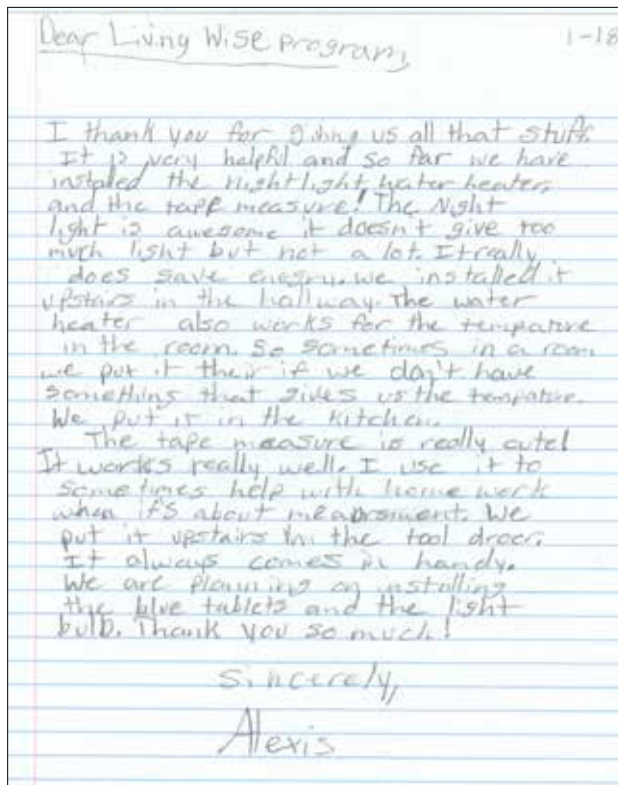 Dear Living Wise program,
1-18
I thank you for giving us all that stuff.
It is very helpful and so far we have
installed the nightlight, water heater,
and the tape measure! The Night
light is awesome it doesn't give too
much light but not a lot. It really
does save energy. we installed it
upstairs in the hallway. The water
heater also works for the tempature
in the room. So sometimes in a room
we put it their if we don't have
something that gives us the tempature.
We put it in the kitchen.
The tape measure is really cute!
It works really well. I use it to
sometimes help with home work
when it's about mearsment. We
put it upstairs in the tool droer.
It always comes in handy.
We are planning on installing
the blue tablets and the light
bulb. Thank you so much!
Sincerely,
Alexis